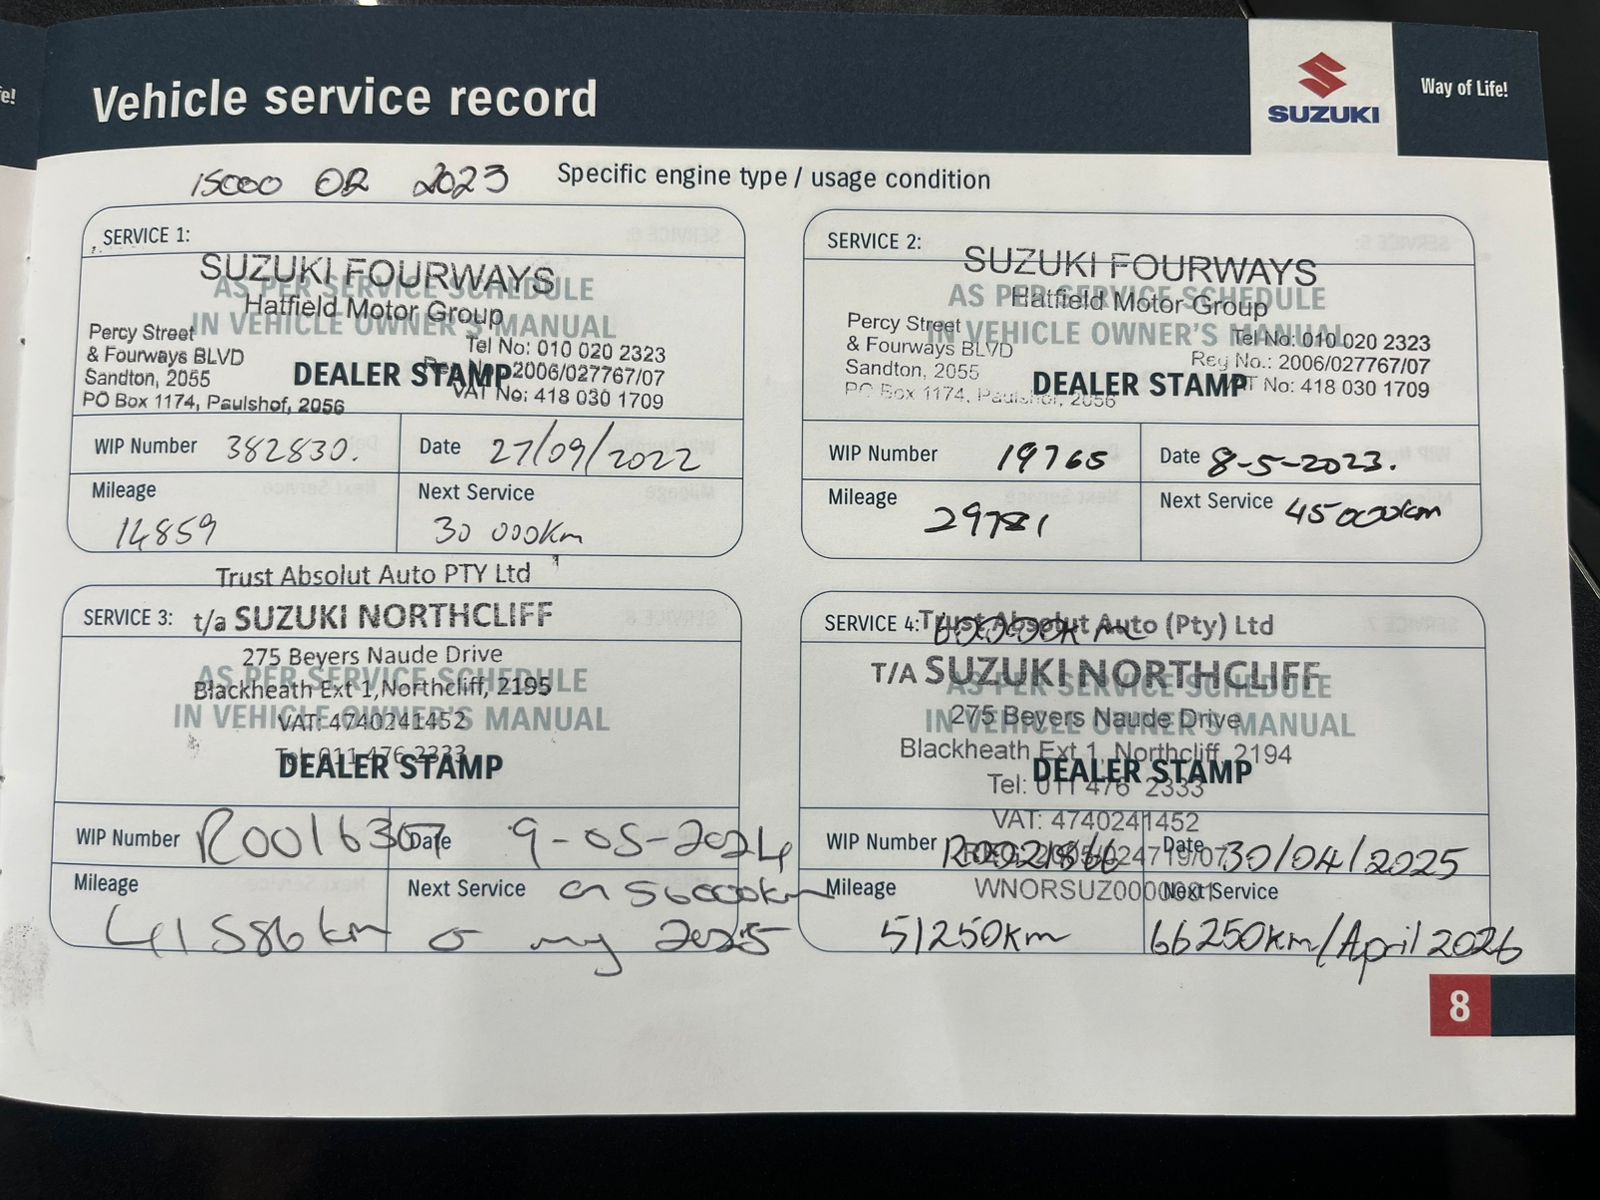 fe!
Vehicle service record
SUZUKI
Way of Life!
15000 OR 2023
Specific engine type / usage condition
SERVICE 1:
SUZUKI FOURWAYS
AS PER SERVICE SCHEDULE
Hatfield Motor Group
IN VEHICLE OWNER'S MANUAL
Percy Street
& Fourways BLVD
Sandton, 2055
PO Box 1174, Paulshof, 2056
Tel No: 010 020 2323
Reg No.: 2006/027767/07
VAT No: 418 030 1709
DEALER STAMP
WIP Number 382830.
Date 27/09/2022
Mileage
14859
Next Service
30 000km
SERVICE 2:
SUZUKI FOURWAYS
AS PER SERVICE SCHEDULE
Hatfield Motor Group
IN VEHICLE OWNER'S MANUAL
Percy Street
& Fourways BLVD
Sandton, 2055
PO Box 1174, Paulshof, 2056
Tel No: 010 020 2323
Reg No.: 2006/027767/07
VAT No: 418 030 1709
DEALER STAMP
WIP Number 19765
Date 8-5-2023.
Mileage
29781
Next Service 45000km
Trust Absolut Auto PTY Ltd
SERVICE 3: t/a SUZUKI NORTHCLIFF
275 Beyers Naude Drive
AS PER SERVICE SCHEDULE
Blackheath Ext 1, Northcliff, 2195
IN VEHICLE OWNER'S MANUAL
VAT: 4740241452
Tel: 011 476 2333
DEALER STAMP
WIP Number R0016307
Date 9-05-2024
Mileage
41586km
Next Service @ 56000km
or may 2025
SERVICE 4: Trust Absolut Auto (Pty) Ltd
60000km
T/A SUZUKI NORTHCLIFF
AS PER SERVICE SCHEDULE
275 Beyers Naude Drive
IN VEHICLE OWNER'S MANUAL
Blackheath Ext 1, Northcliff, 2194
DEALER STAMP
Tel: 011 476 2333
VAT: 4740241452
WIP Number
Date 30/04/2025
WNORSUZ0000001
Mileage
51250km
Next Service
66250km/April 2026
8